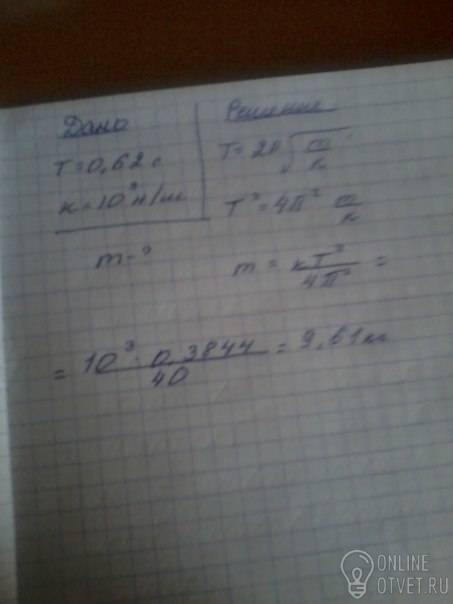 Дано
T = 0,62 с
к = 10³ н/м
m - ?
Решение
T = 2π √m/к
T² = 4π² m/к
m = кT²/4π² =
= 10³ · 0,3844/40 = 9,61 кг
ONLINE
OTVET.RU